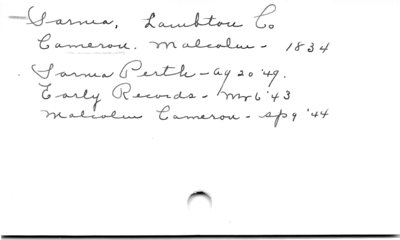 Sarnia, Lambton Co
Cameron. Malcolm - 1834
Sarnia Perth - ag 20 '49.
Early Records - My 6 '43
Malcolm Cameron - sp 9 '44